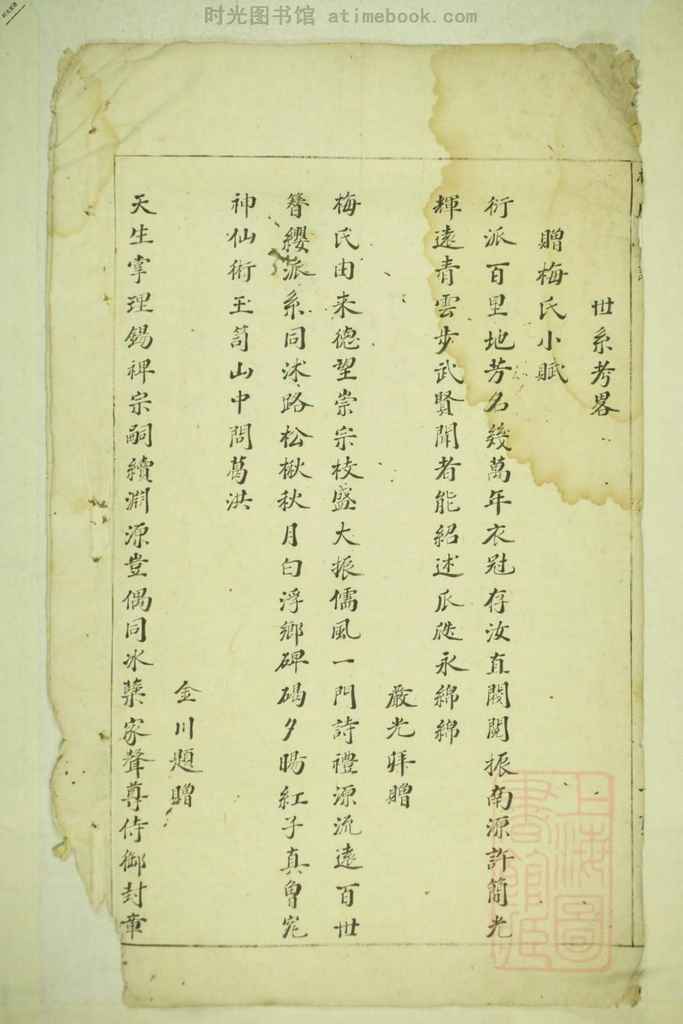 时光图书馆 atimebook.com
世系考畧
贈梅氏小賦
衍派百里地芳名幾萬年衣冠存汝直閥閱振南源許簡光
輝遠青雲步武賢聞者能紹述瓜瓞永綿綿
嚴光拜贈
梅氏由来德望崇宗枝盛大振儒風一門詩禮源流遠百世
簪纓派系同沭路松楸秋月白浮鄉碑碣夕暘紅子真曾宛
神仙術玉笥山中問葛洪
金川題贈
天生掌理錫禆宗嗣續淵源豈偶同冰蘖家聲尊侍御封章
上海圖書館藏